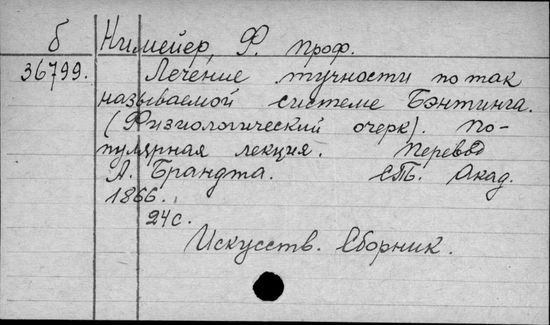 б Нимейер, Ф. проф.
36799. Лечение тучности по так
называемой системе Бэнтинга.
(Физиологический очерк). По-
пулярная лекция. Перевод
А. Брандта. СПб. Акад.
1866.
24с.
Искусств. Сборник.